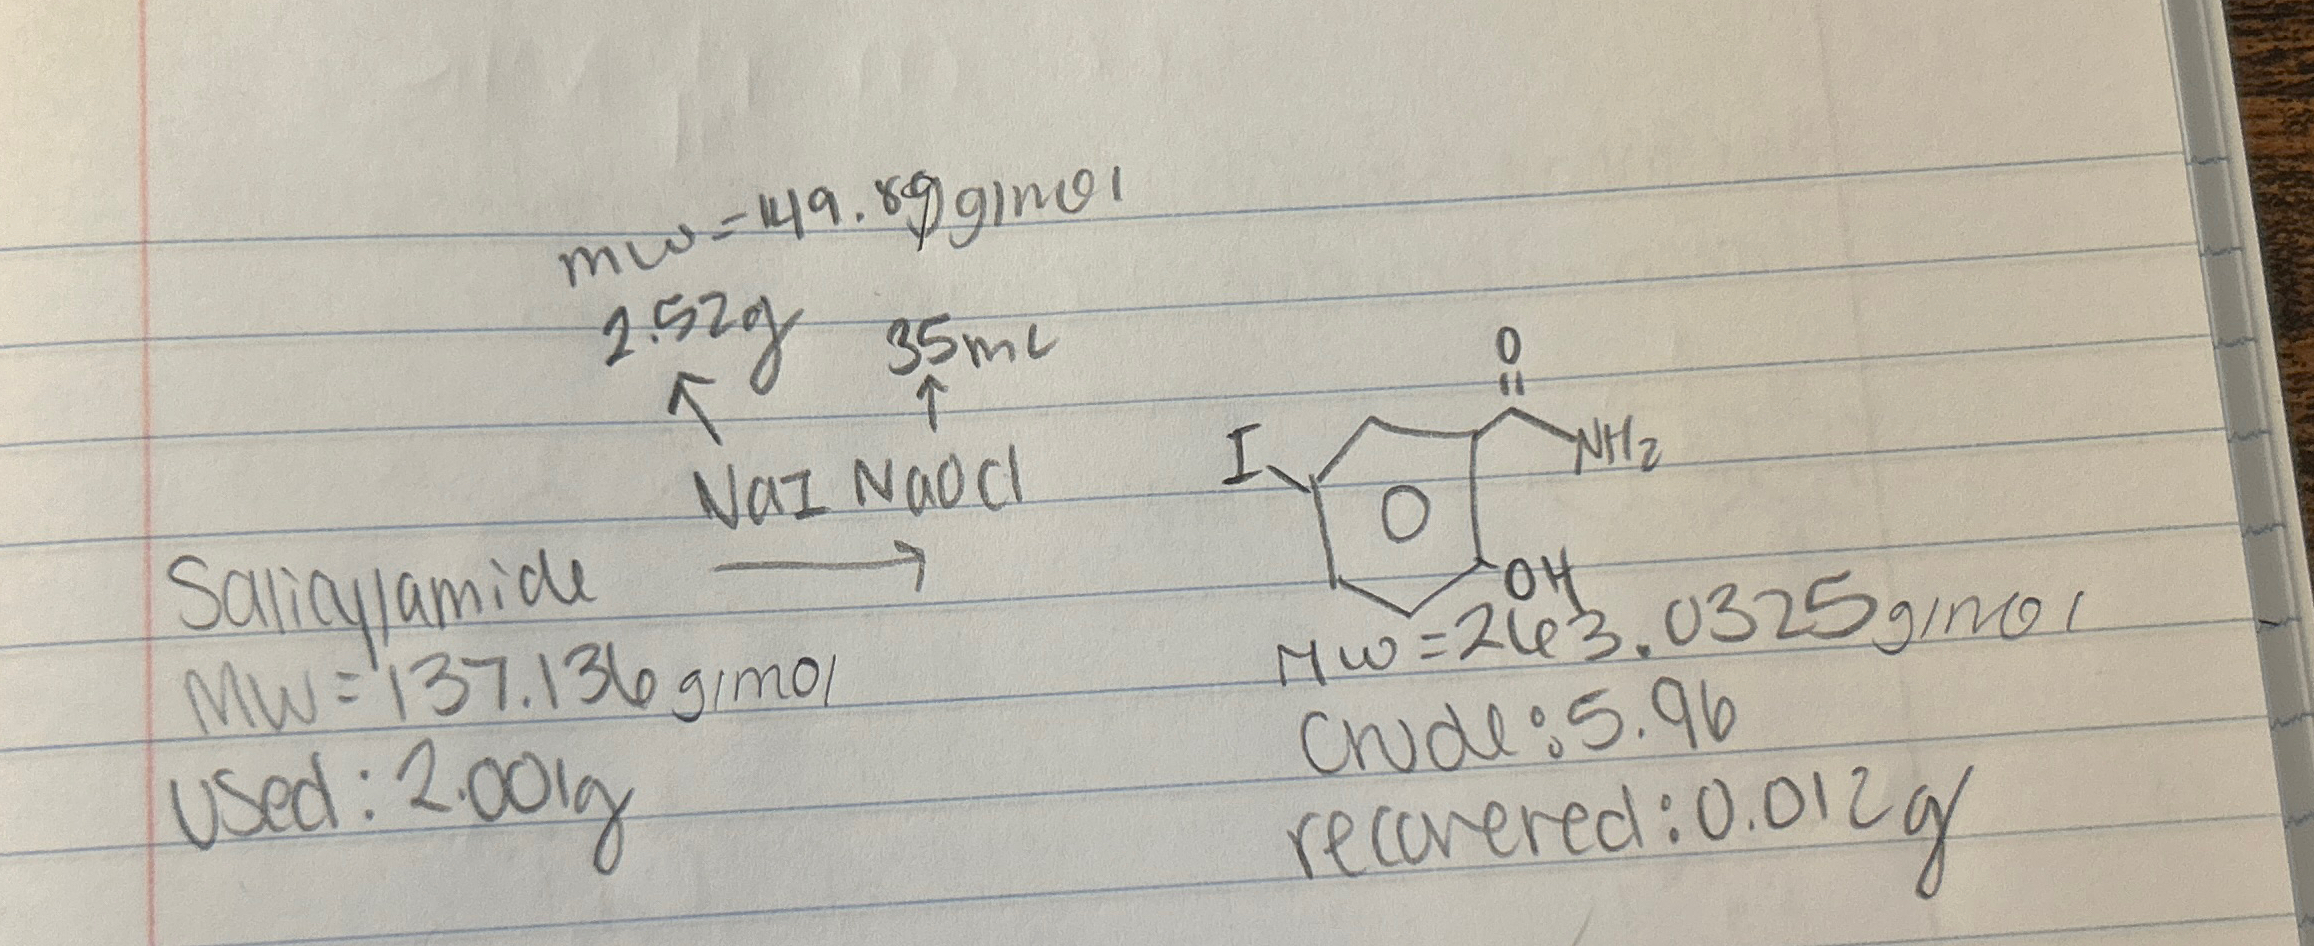 mw=149.89g/mol
2.52g 35mL
NaI NaOCl
O
I NH2
OH
Salicylamide
MW=137.136g/mol
used: 2.001g
MW=263.0325g/mol
Crude: 5.96
recovered: 0.012g